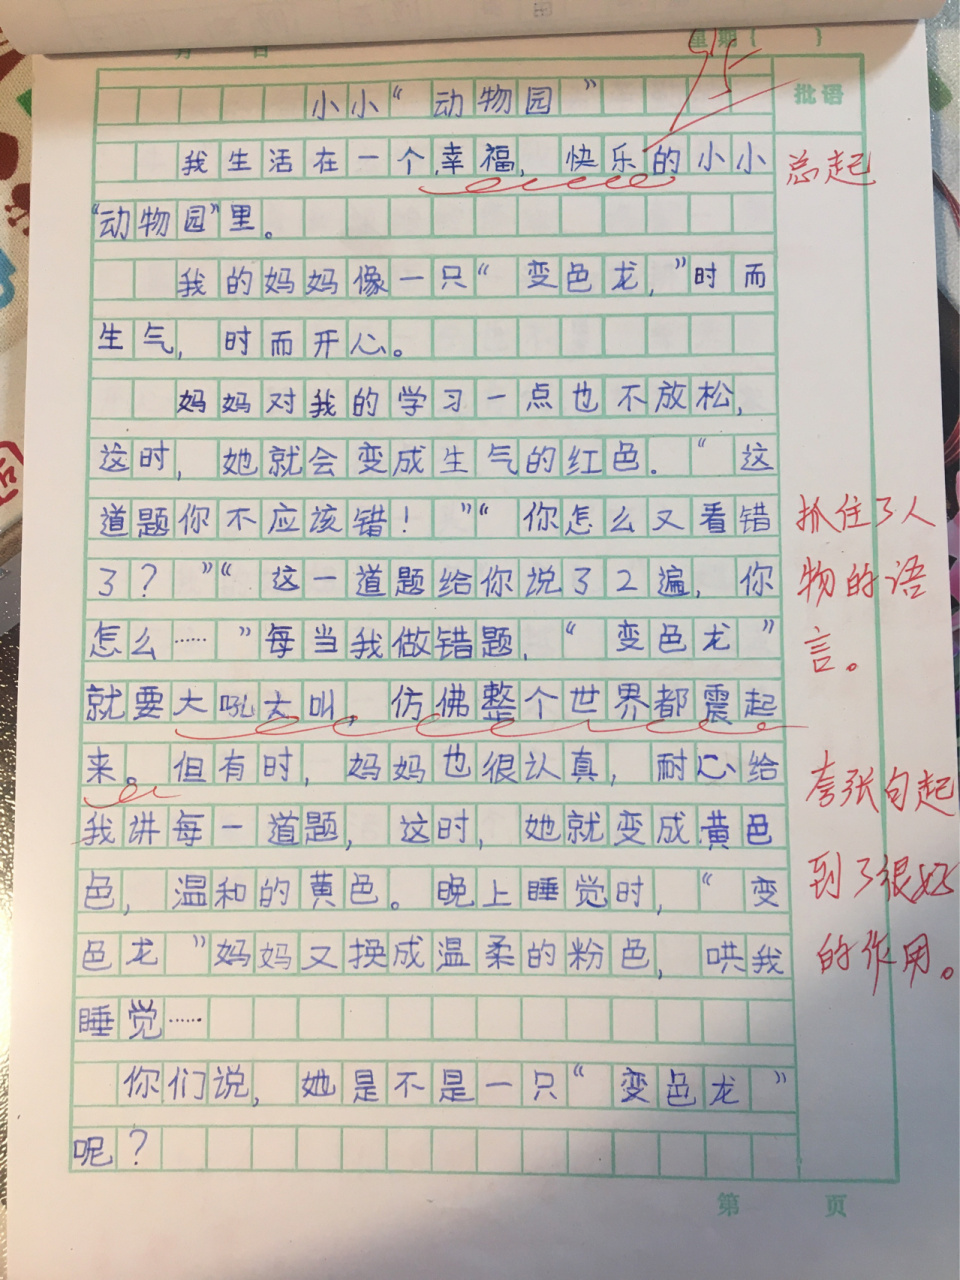 月 日 星期( )
95
小小“动物园”
批语
我生活在一个幸福，快乐的小小
总起
“动物园”里。
我的妈妈像一只“变色龙，”时而
生气，时而开心。
妈妈对我的学习一点也不放松，
这时，她就会变成生气的红色．“这
道题你不应该错！”“你怎么又看错
抓住了人
了？”“这一道题给你说了2遍，你
物的语
怎么……”每当我做错题，“变色龙”
言。
就要大吼大叫，仿佛整个世界都震起
来。但有时，妈妈也很认真，耐心给
夸张句起
我讲每一道题，这时，她就变成黄色
色，温和的黄色。晚上睡觉时，“变
到了很好
色龙”妈妈又换成温柔的粉色，哄我
的作用。
睡觉……
你们说，她是不是一只“变色龙”
呢？
第 页